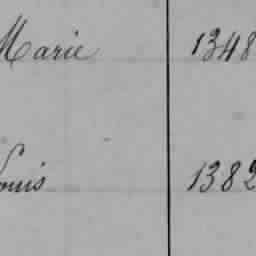 Marie 1348
Louis 1382